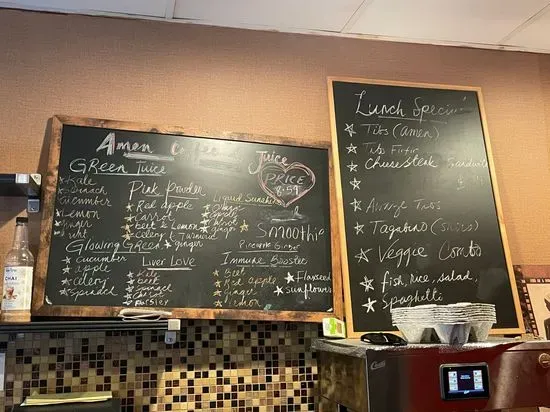 Amen Juice
GREEN Juice
Kale
Spinach
Cucumber
Lemon
ginger
Glowing Green
cucumber
apple
celery
Spinach
Pink Powder
Red apple
Carrot
beet & Lemon
celery & Turmeric
ginger
LIVER LOVE
Kale
Beet
spinach
Parsley
Liquid Sunshine
ginger
PRICE
8.59
Smoothie
Pineapple Ginger
Immune Booster
Beet
Red Apple
Ginger
lemon
Flaxseed
sunflower
Lunch Special
Tibs (amen)
Tib Firfir
Cheesesteak
Awaze Tibs
Tagabino (shiro)
Veggie Combo
fish, Rice, salad,
Spaghetti
CHAI